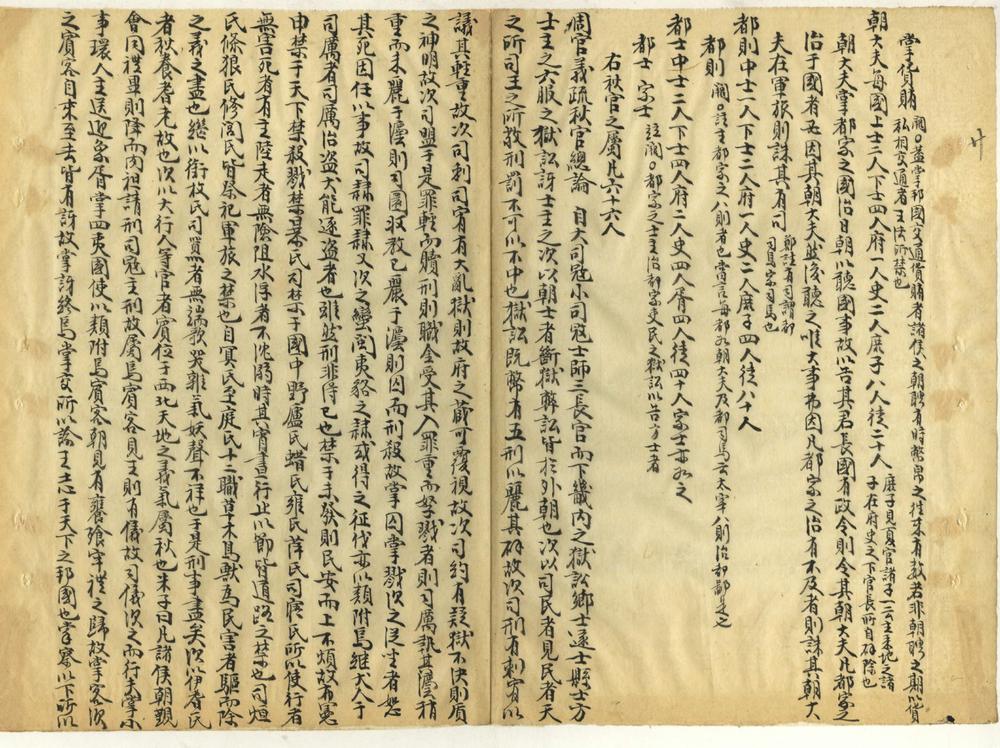 掌貨賄 闕○蓋掌邦國交通貨賄者諸侯之朝聘有時幣帛之往來有數若非朝聘之期以貨
私相交通者王法所禁也
朝大夫每國上士二人下士四人府一人史二人庶子八人徒二十人 庶子見夏官諸子一云主采地之諸
子在府史之下官長所自辟除也
朝大夫掌都家之國治日朝以聽國事故以告其君長國有政令則令其朝大夫凡都家之
治于國者必因其朝大夫然後聽之唯大事弗因凡都家之治有不及者則誅其朝大
夫在軍旅則誅其有司 鄭註有司謂都
司馬家司馬也
都則中士一人下士二人府一人史二人庶子四人徒八十人
都則 闕○註主都家之八則者也當言每都如朝大夫及都司馬云太宰八則治都鄙是也
都士中士二人下士四人府二人史四人胥四人徒四十人家士亦如之
都士 家士 註闕○都家之士主治都家吏民之獄訟以告方士者
右秋官之屬凡六十六人
周官義疏秋官總論 自大司寇小司寇士師三長官而下畿內之獄訟鄉士遂士縣士方
士主之六服之獄訟訝士主之次以朝士者斷獄弊訟皆於外朝也次以司民者見民者天
之所司王之所敬刑罰不可以不中也獄訟既弊有五刑以麗其辟故次司刑有刺宥以
議其輕重故次司刺司宥有大亂獄則故府之藏可覆視故次司約有疑獄不決則質
之神明故次司盟于是罪輕而贖刑則職金受其入罪重而孥戮者則司厲執其灋稍
重而未麗于灋則司圜收敎已麗于灋則囚而刑殺故掌囚掌戮次之從生者恕
其死因任以事故司隸罪隸又次之蠻閩夷貉之隸或得之征伐亦以類附焉維犬人于
司厲者司厲治盜犬能逐盜者也雖然刑非得已也禁于未發則民安而上不煩故布憲
申禁于天下禁殺戮禁暴氏司禁于國中野廬氏蜡氏雍氏萍氏司寤氏所以使行者
無害死者有主陸走者無險阻水浮者不沈溺時其宵晝行止以節皆道路之禁也司烜
氏條狼氏修閭氏皆祭祀軍旅之禁也自冥氏至庭氏十二職草木鳥獸為民害者驅而除
之義之盡也繼以銜枚氏司嚚者無譁歌哭雜氣妖聲不祥也于是刑事盡矣次以伊耆氏
者秋養耆老故也次以大行人等官者賓位于西北天地之義氣屬秋也朱子曰凡諸侯朝覲
會同禮畢則降而肉袒請刑司寇主刑故屬焉賓客見王則有儀故司儀次之而行夫掌小
事環人主送迎象胥掌四夷國使以類附焉賓客朝見有饔飧牢禮之歸故掌客次
之賓客自來至去皆有訝故掌訝終焉掌交所以諭王志于天下之邦國也掌察以下所以